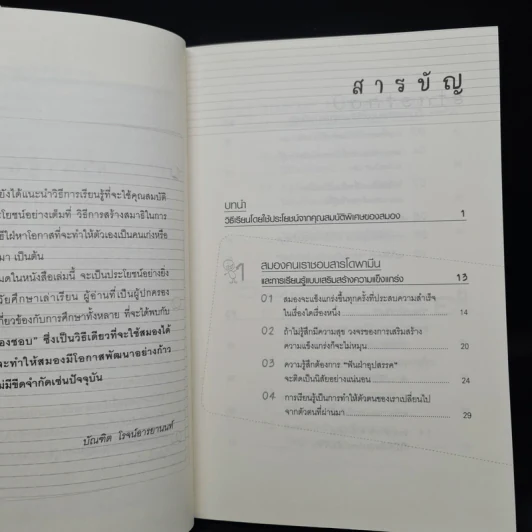 ยังได้แนะนำวิธีการเรียนรู้ที่จะใช้คุณสมบัติ
โยชน์อย่างเต็มที่ วิธีการสร้างสมาธิในการ
ใฝ่หาโอกาสที่จะทำให้ตัวเองเป็นคนเก่งหรือ
มา เป็นต้น
มดในหนังสือเล่มนี้ จะเป็นประโยชน์อย่างยิ่ง
วัยศึกษาเล่าเรียน ผู้อ่านที่เป็นผู้ปกครอง
กี่ยวข้องกับการศึกษาทั้งหลาย ที่จะได้พบกับ
องชอบ" ซึ่งเป็นวิธีเดียวที่จะใช้สมองได้
จะทำให้สมองมีโอกาสพัฒนาอย่างก้าว
ม่มีขีดจำกัดเช่นปัจจุบัน
บัณฑิต โรจน์อารยานนท์
สารบัญ
บทนำ
วิธีเรียนโดยใช้ประโยชน์จากคุณสมบัติพิเศษของสมอง 1
1 สมองคนเราชอบสารโดพามีน
และการเรียนรู้แบบเสริมสร้างความแข็งแกร่ง 13
01 สมองจะแข็งแกร่งขึ้นทุกครั้งที่ประสบความสำเร็จ
ในเรื่องใดเรื่องหนึ่ง 14
02 ถ้าไม่รู้สึกมีความสุข วงจรของการเสริมสร้าง
ความแข็งแกร่งก็จะไม่หมุน 20
03 ความรู้สึกต้องการ "ฟันฝ่าอุปสรรค"
จะติดเป็นนิสัยอย่างแน่นอน 24
04 การเรียนรู้เป็นการทำให้ตัวตนของเราเปลี่ยนไป
จากตัวตนที่ผ่านมา 29